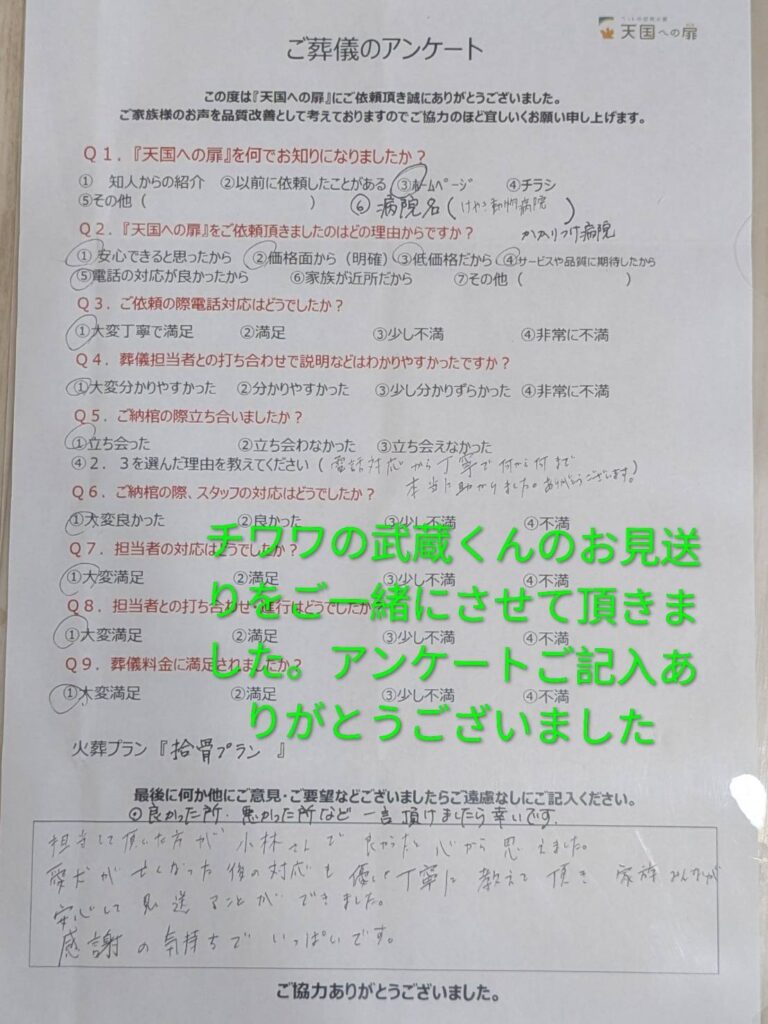 ペットの訪問火葬
天国への扉
ご葬儀のアンケート
この度は『天国への扉』にご依頼頂き誠にありがとうございました。
ご家族様のお声を品質改善として考えておりますのでご協力のほど宜しくお願い申し上げます。
Q1.『天国への扉』を何でお知りになりましたか?
① 知人からの紹介 ②以前に依頼したことがある ③ホームページ ④チラシ
⑤その他( ) ⑥病院名(けやき動物病院)
かかりつけ病院
Q2.『天国への扉』をご依頼頂きましたのはどの理由からですか?
①安心できると思ったから ②価格面から(明確)③低価格だから ④サービスや品質に期待したから
⑤電話の対応が良かったから ⑥家族が近所だから ⑦その他( )
Q3.ご依頼の際電話対応はどうでしたか?
①大変丁寧で満足 ②満足 ③少し不満 ④非常に不満
Q4.葬儀担当者との打ち合わせで説明などはわかりやすかったですか?
①大変分かりやすかった ②分かりやすかった ③少し分かりずらかった ④非常に不満
Q5.ご納棺の際立ち合いましたか?
①立ち会った ②立ち会わなかった ③立ち会えなかった
④2.3を選んだ理由を教えてください(電話対応から丁寧で何から何まで
本当に助かりました。ありがとうございます。)
Q6.ご納棺の際、スタッフの対応はどうでしたか?
①大変良かった ②良かった ③少し不満 ④不満
Q7.担当者の対応はどうでしたか?
①大変満足 ②満足 ③少し不満 ④不満
Q8.担当者との打ち合わせ・進行はどうでしたか?
①大変満足 ②満足 ③少し不満 ④不満
Q9.葬儀料金に満足されましたか?
①大変満足 ②満足 ③少し不満 ④不満
チワワの武蔵くんのお見送
りをご一緒にさせて頂きま
した。アンケートご記入あ
りがとうございました
火葬プラン『拾骨プラン』
最後に何か他にご意見・ご要望などございましたらご遠慮なしにご記入ください。
⊙良かった所・悪かった所など一言頂けましたら幸いです。
担当して頂いた方が小林さんで良かったと心から思えました。
愛犬が亡くなった後の対応も優しく丁寧に教えて頂き 家族みんなが
安心して見送ることができました。
感謝の気持ちでいっぱいです。
ご協力ありがとうございました。